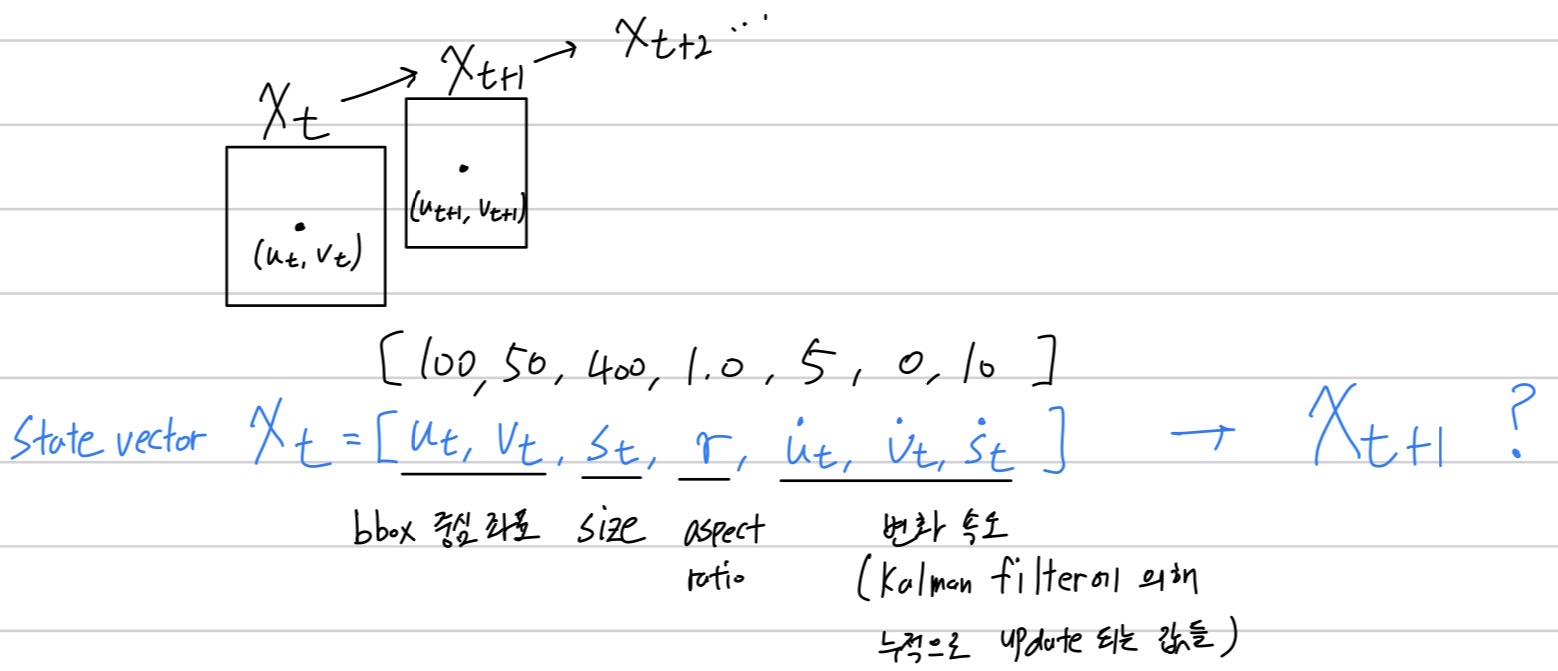 X_t → X_{t+1} → X_{t+2} ...
(u_t, v_t)
(u_{t+1}, v_{t+1})
[100, 50, 400, 1.0, 5, 0, 10]
State vector X_t = [u_t, v_t, s_t, r, u̇_t, v̇_t, ṡ_t] → X_{t+1} ?
bbox 중심 좌표 size aspect ratio 변화 속도
(Kalman filter에 의해
누적으로 update 되는 값들)